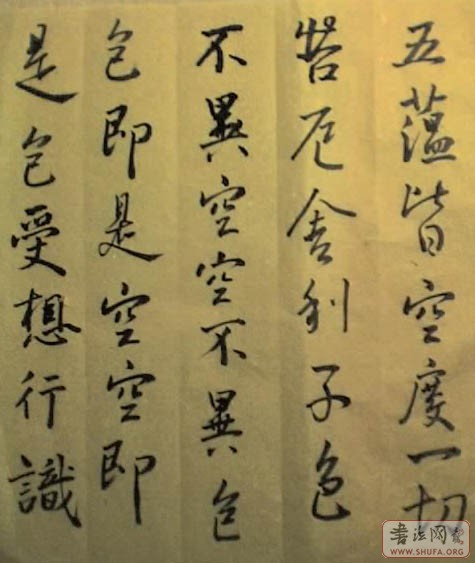 五蘊皆空度一切
苦厄舍利子色
不異空空不異色
色即是空空即
是色受想行識
书法网
WWW.SHUFA.ORG